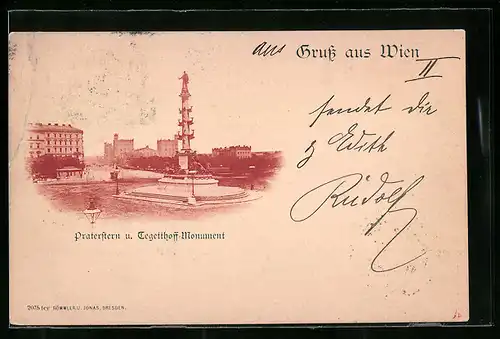 aus Gruß aus Wien
II
sendet dir
Edith
Rudolf
Praterstern u. Tegetthoff-Monument
RÖMMLER U. JONAS, DRESDEN.